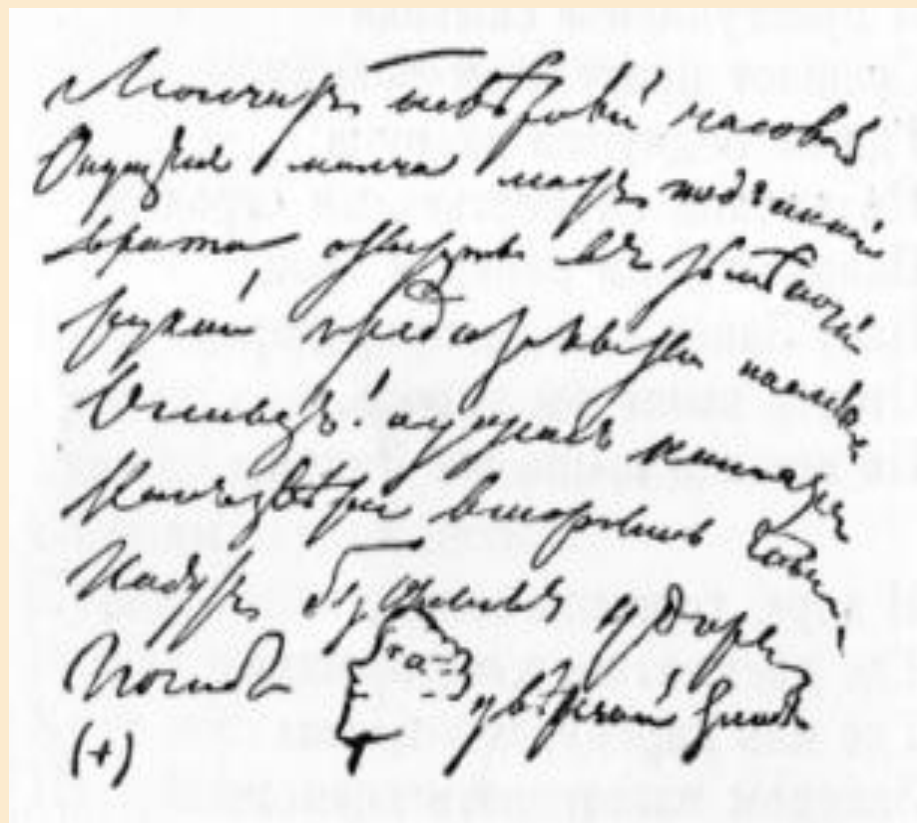 Молчитъ невѣрный часовой
Опущенъ молча мостъ подъемный
врата отверсты въ тьмѣ ночной
рукой предательства наемной
О стыдъ! о ужасъ нашихъ
Какъ звѣри вторглись
Падутъ безславные удары
Погибъ увѣнчанный злодѣй
(+)